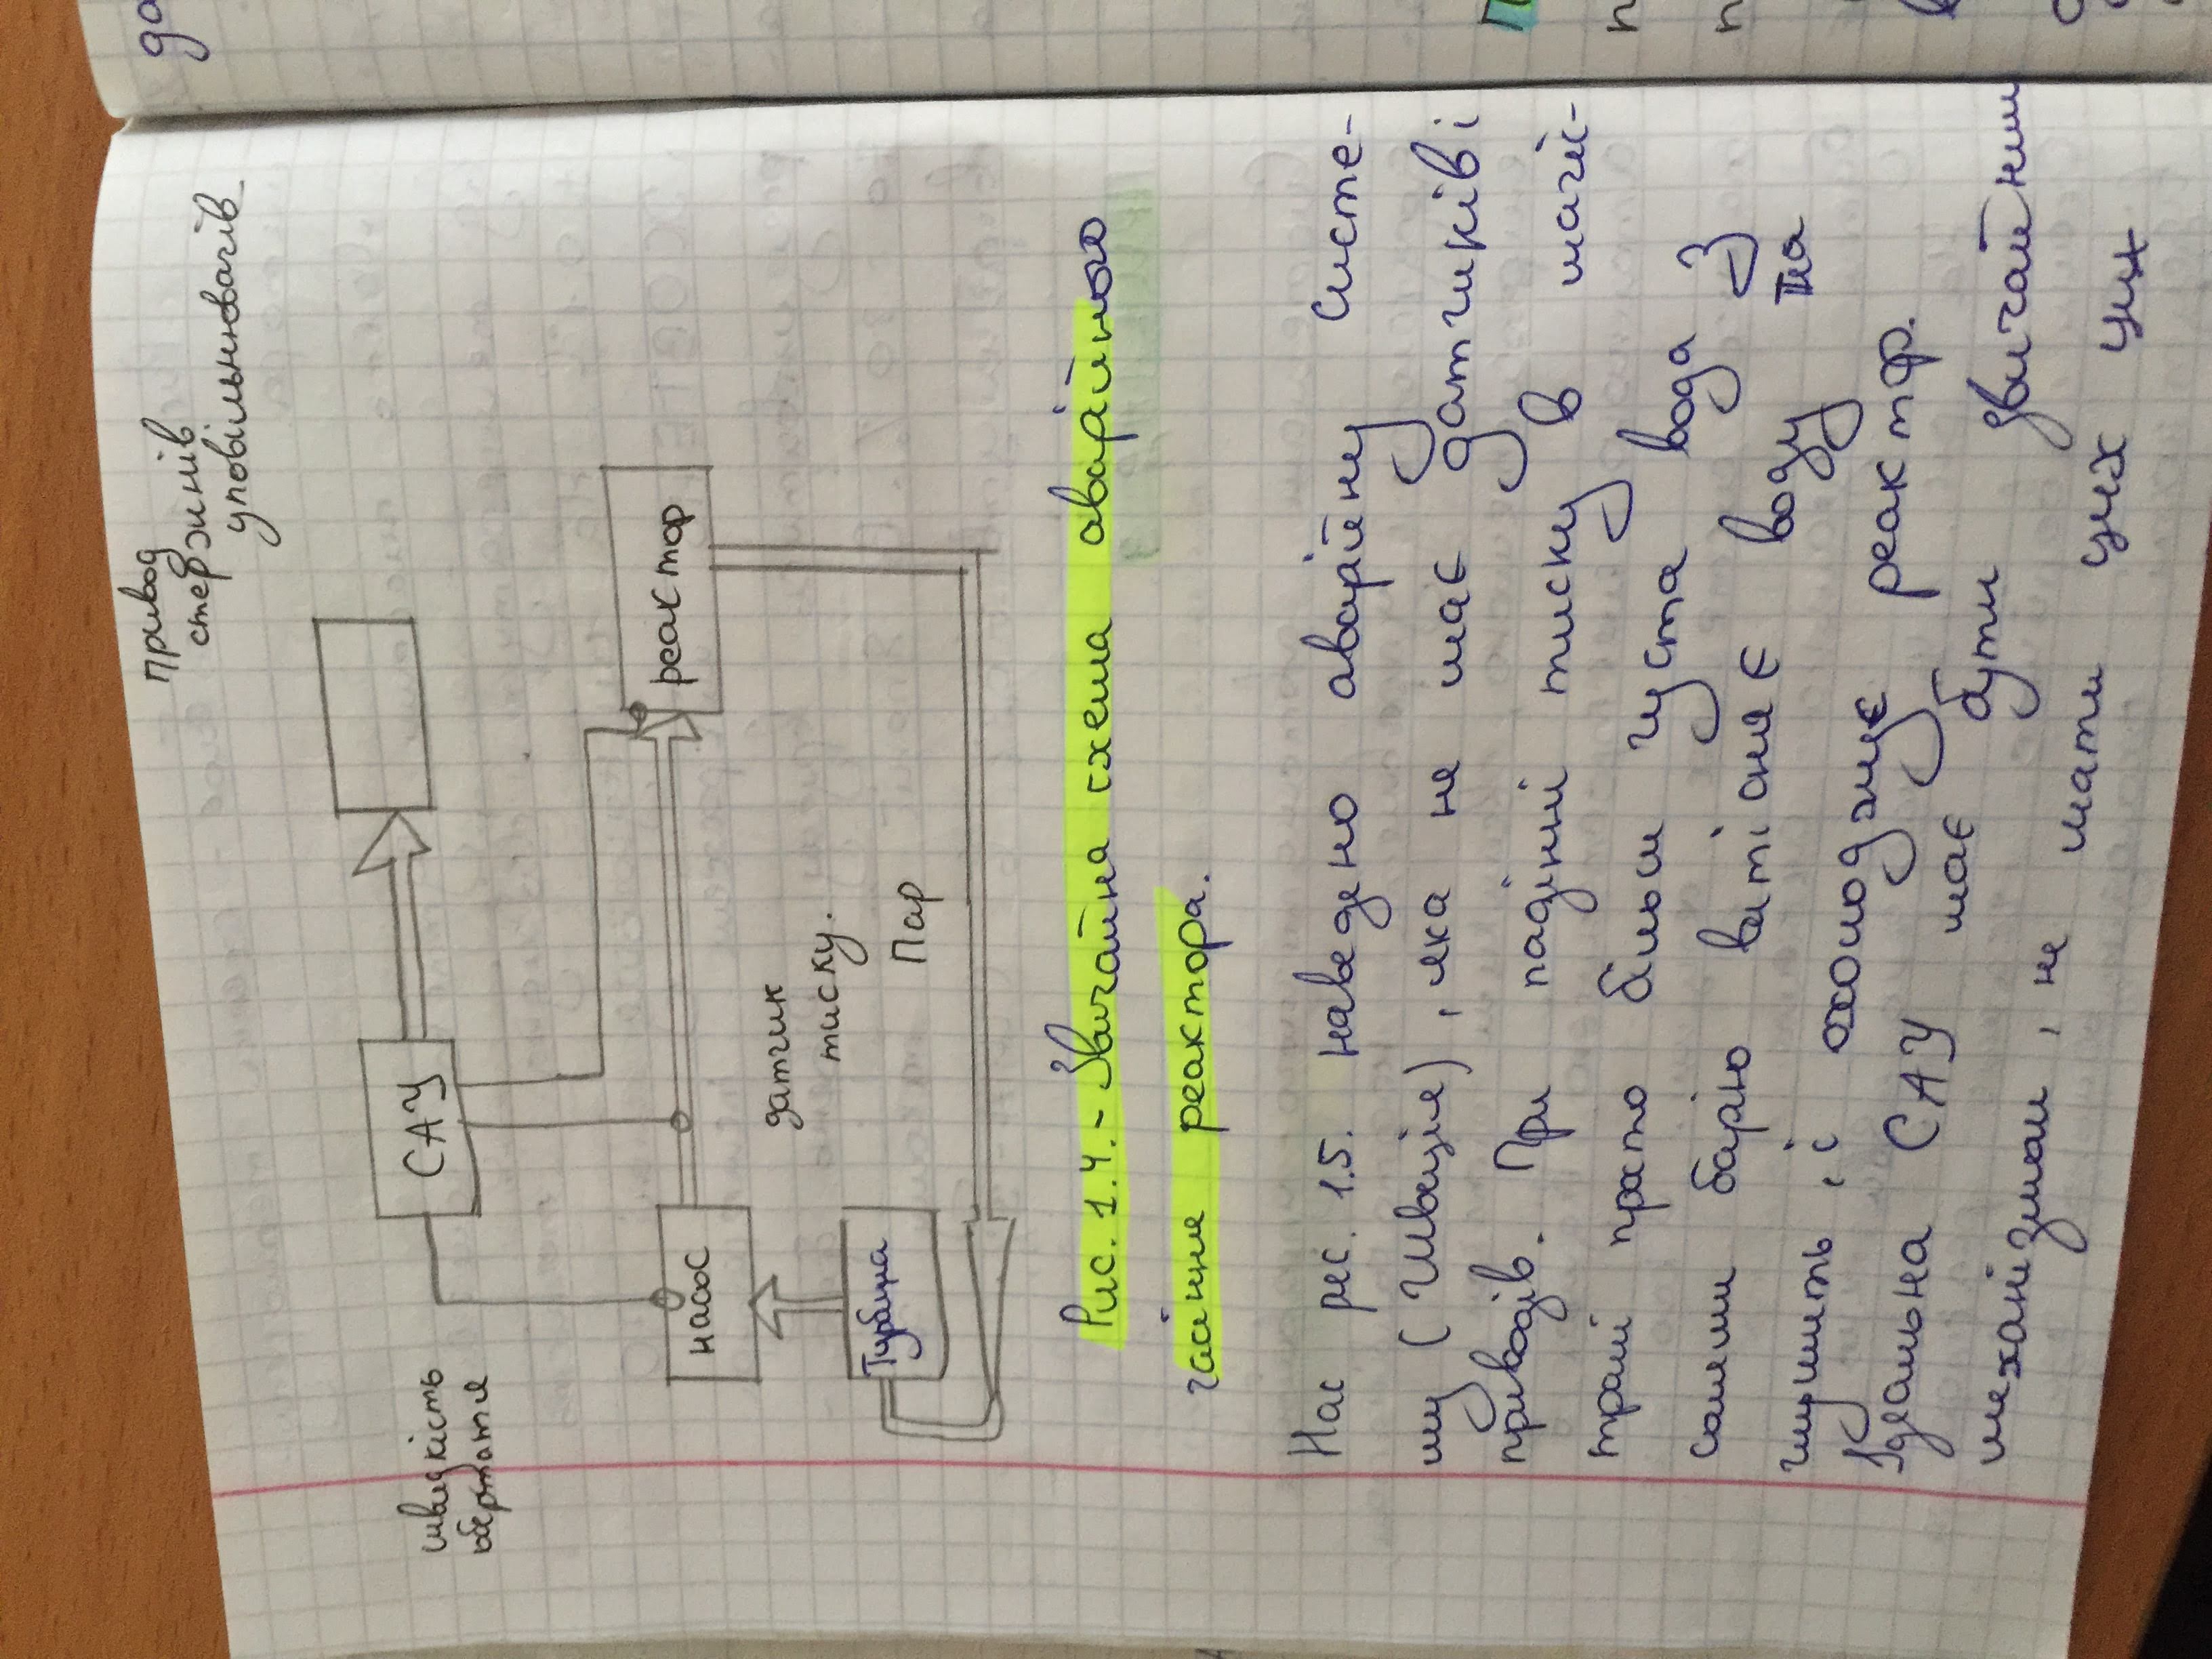 привод
стержнів
уповільнювачів
САУ
швидкість
обертання
насос
реактор
датчик
тиску.
Турбіна
Пар
Рис. 1.4. - Звичайна схема аварійного
гасіння реактора.
Нас рес. 1.5. наведено аварійну систе-
му (Швеція), яка не має датчиків і
приводів. При падінні тиску в магіс-
тралі просто більш густа вода з
солями барію витісняє воду та
глушить, і охолоджує реактор.
Ідеальна САУ має бути звичайним
механізмом, не мати цих цих